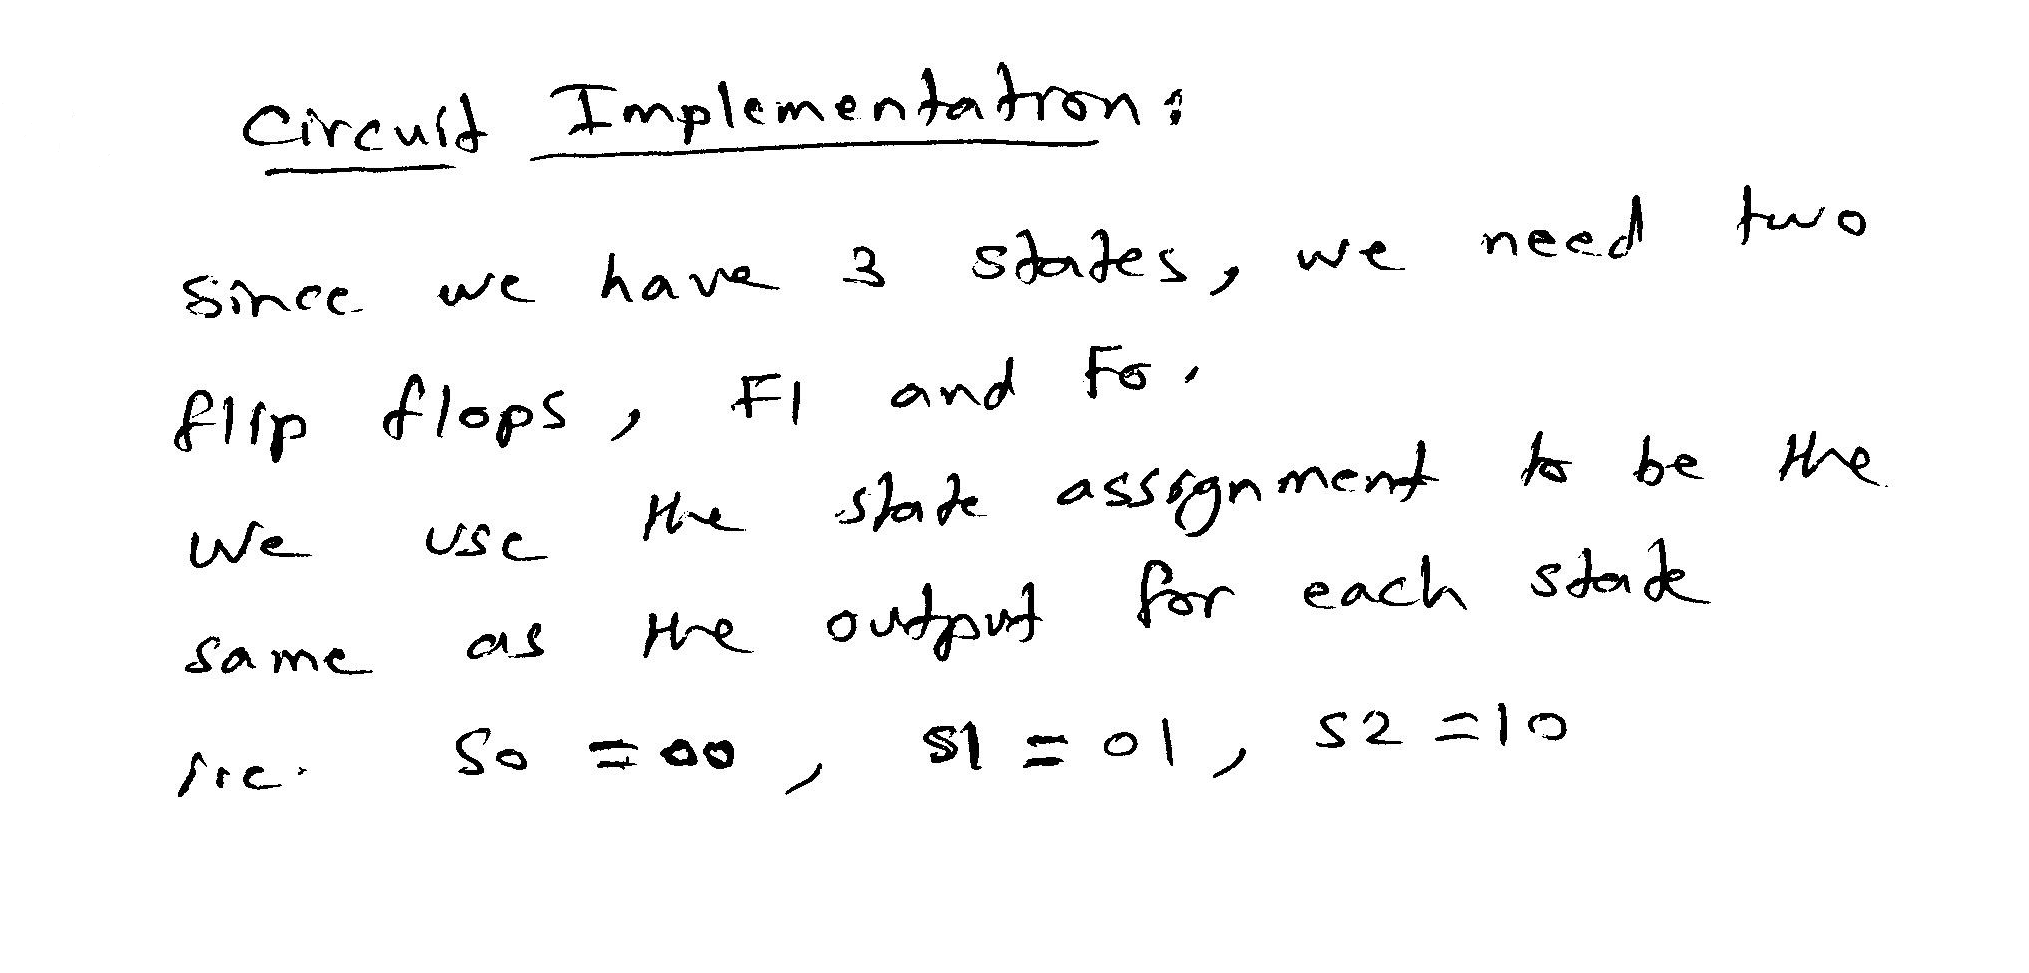 Circuit Implementation:
Since we have 3 states, we need two
flip flops, F1 and F0.
We use the state assignment to be the
same as the output for each state
i.e. S0 = 00, S1 = 01, S2 = 10